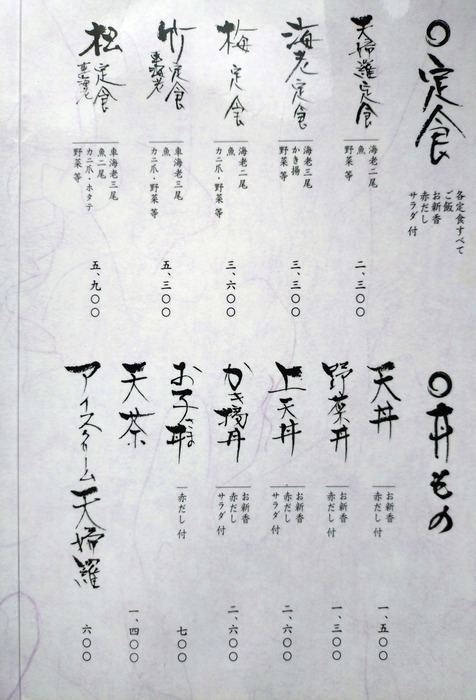 ○定食
各定食すべて
ご飯
お新香
赤だし
サラダ 付
天婦羅定食
海老 二尾
魚
野菜 等
二、三〇〇
海老定食
海老 三尾
かき揚
野菜 等
三、三〇〇
梅定食
海老 二尾
魚
カニ爪・野菜 等
三、六〇〇
竹定食
車海老
車海老 三尾
魚
カニ爪・野菜 等
五、三〇〇
松定食
車海老
車海老 三尾
魚 二尾
カニ爪・ホタテ
野菜 等
五、九〇〇
○丼もの
天丼
お新香
赤だし 付
一、五〇〇
野菜丼
お新香
赤だし 付
一、三〇〇
上天丼
お新香
赤だし
サラダ 付
二、六〇〇
かき揚丼
お新香
赤だし
サラダ 付
二、六〇〇
お子さま丼
赤だし 付
七〇〇
天茶
一、四〇〇
アイスクリーム天婦羅
六〇〇